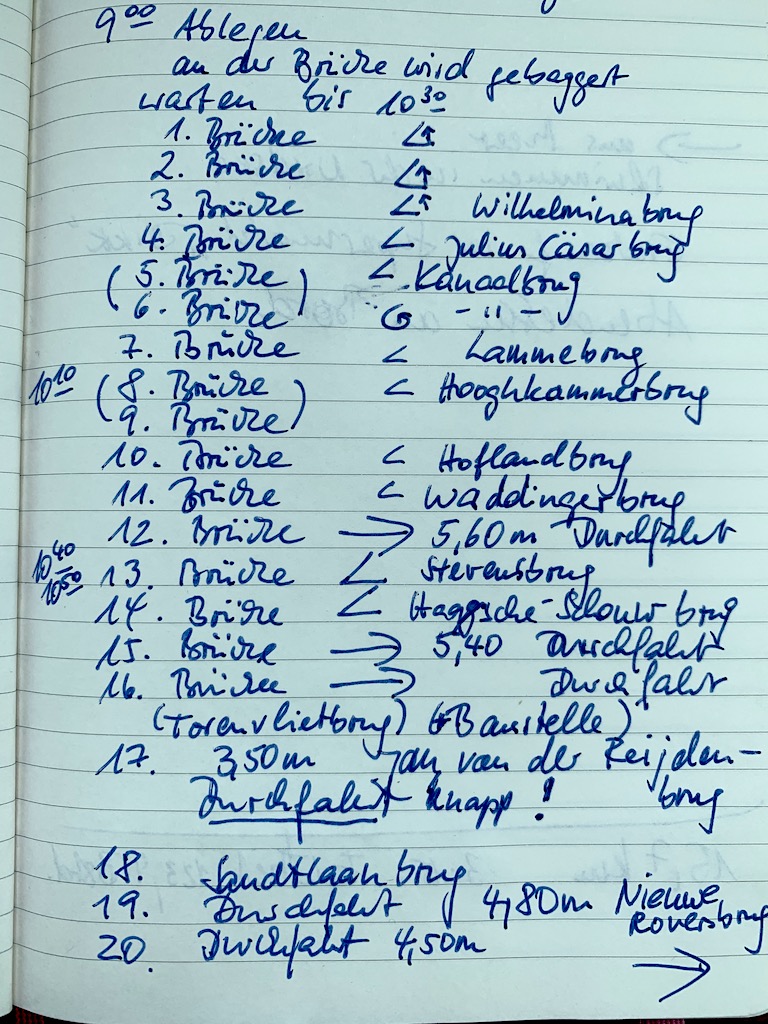 9⁰⁰ Ablegen
an der Brücke wird gebaggert
warten bis 10³⁰
1. Brücke ∠↑
2. Brücke ∠↑
3. Brücke ∠↑ Wilhelminabrug
4. Brücke < Julius Cäsarbrug
(5. Brücke) < Kanaalbrug
(6. Brücke) - " -
7. Brücke < Lammebrug
10¹⁰ (8. Brücke) < Hooghkammerbrug
(9. Brücke)
10. Brücke < Hoflandbrug
11. Brücke < Waddingerbrug
12. Brücke → 5,60m Durchfahrt
10⁴⁰
10⁵⁰ 13. Brücke ∠ Stevensbrug
14. Brücke ∠ Haagsche-Schouw brug
15. Brücke → 5,40 Durchfahrt
16. Brücke → Durchfahrt
(Torenvlietbrug) (+Baustelle)
17. 3,50m Jan van der Reijden-
Durchfahrt knapp! brug
18. Sandtlaan brug
19. Durchfahrt 4,80m Nieuwe
Roversbrug
20. Durchfahrt 4,50m
→